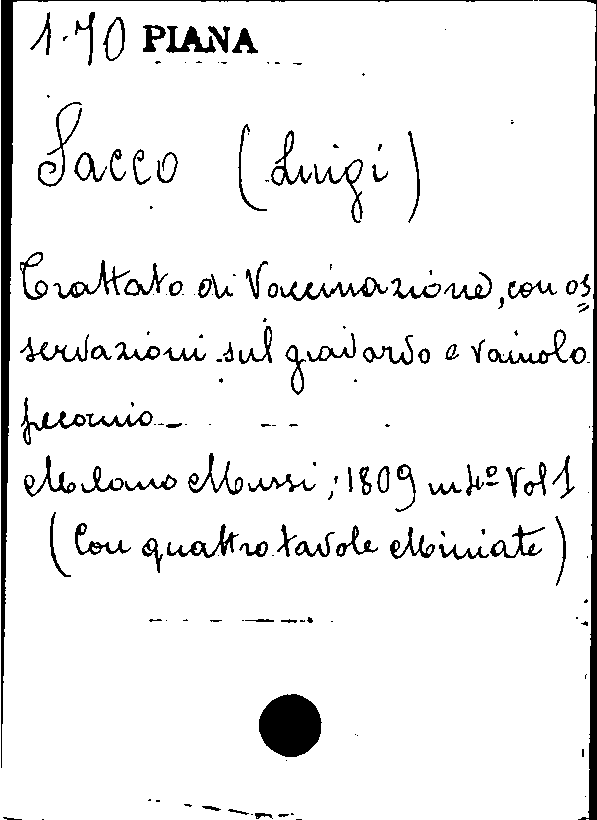 1.70 PIANA
Sacco (Luigi)
Trattato di Vaccinazione, con os
servazioni sul giavardo e vaiuolo
pecorino
Milano Mussi, 1809 in 4º Vol 1
(Con quattro tavole Miniate)